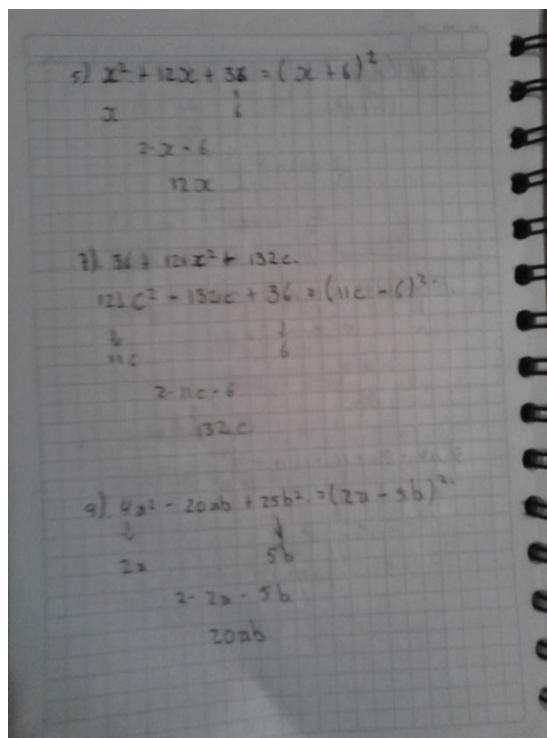 5) x² + 12x + 36 = (x + 6)²
x 6
2·x·6
12x
7) 36 + 121x² + 132c.
121c² - 132c + 36 = (11c - 6)².
11c 6
2·11c·6
132c
9) 4a² - 20ab + 25b² = (2a - 5b)².
2a 5b
2·2a·5b
20ab